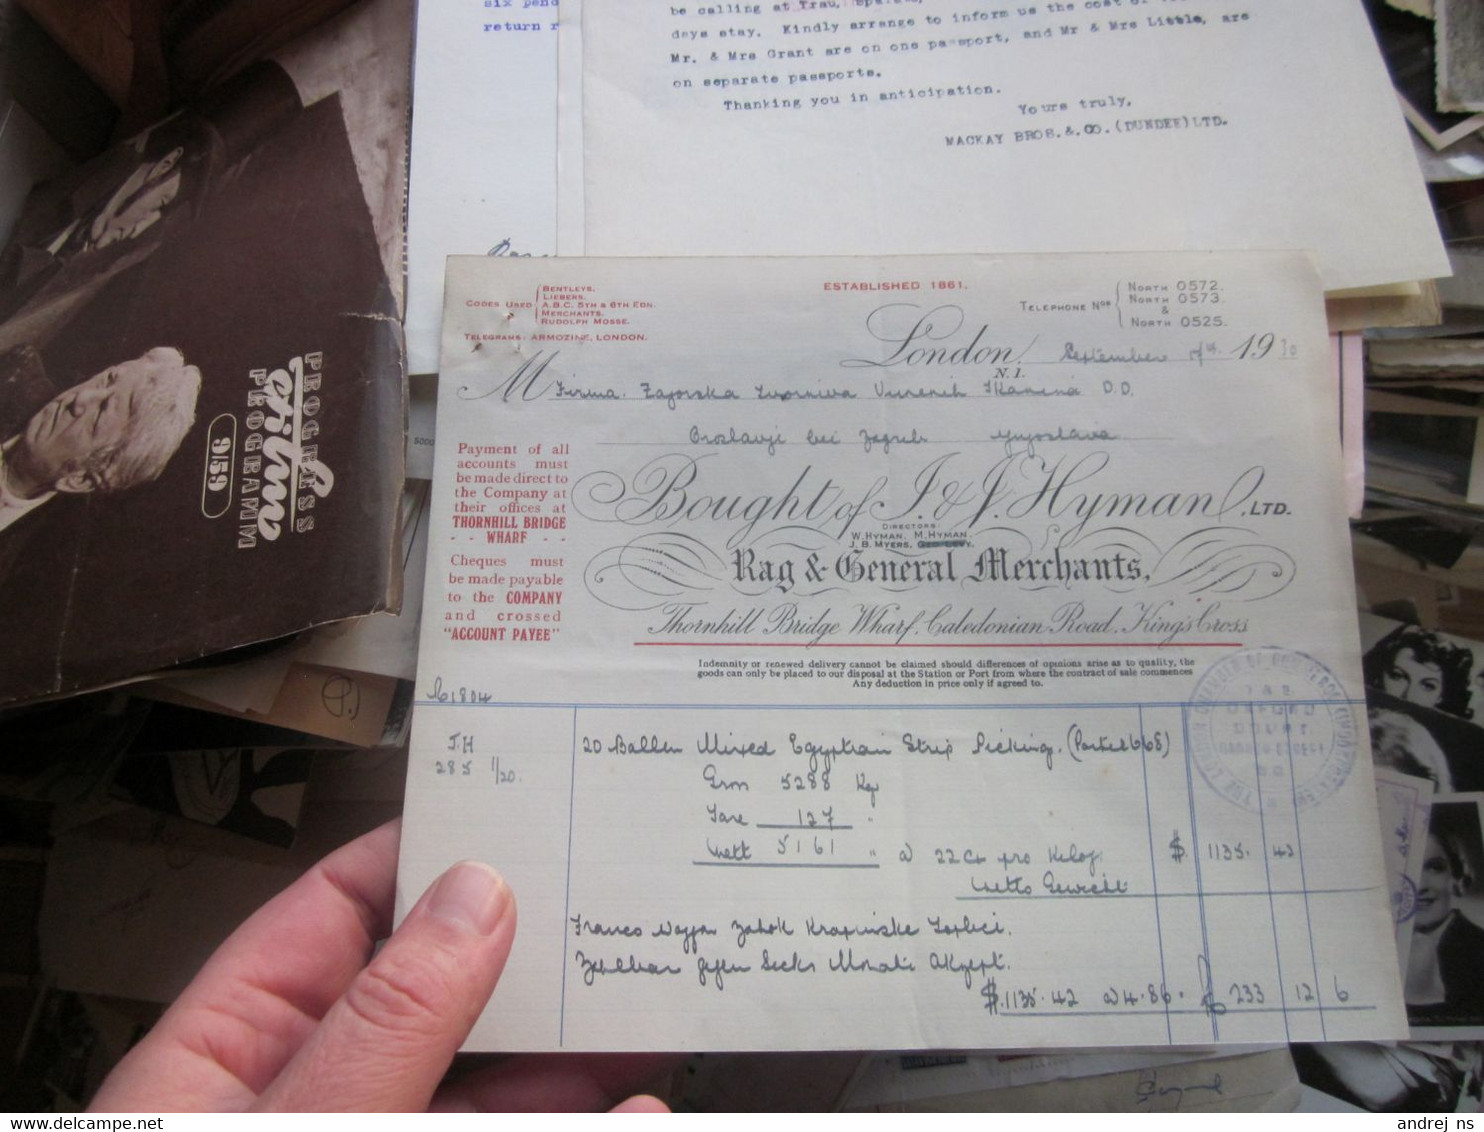 six
return
be calling at Trau,
days stay. Kindly arrange to inform us the cost of
Mr. & Mrs Grant are on one passport, and Mr & Mrs Little, are
on separate passports.
Thanking you in anticipation.
Yours truly,
MACKAY BROS.&.CO.(DUNDEE)LTD.
PROGRESS
film
PROGRAMM
9/59
CODES USED
BENTLEYS.
LIEBERS.
A.B.C. 5TH & 6TH EDN.
MERCHANTS.
RUDOLPH MOSSE.
TELEGRAMS: ARMOZINE, LONDON.
ESTABLISHED 1861.
TELEPHONE Nos
NORTH 0572.
NORTH 0573.
&
NORTH 0525.
London, September 1930
N.1.
M Firma. Zagorska Tvornica Vunenih Tkanina D.D.
Oroslavje bei Zagreb Yugoslavia
Payment of all
accounts must
be made direct to
the Company at
their offices at
THORNHILL BRIDGE
- - WHARF - -
Cheques must
be made payable
to the COMPANY
and crossed
"ACCOUNT PAYEE"
Bought of J. & J. Hyman, LTD.
DIRECTORS:
W. HYMAN. M. HYMAN.
J. B. MYERS.
Rag & General Merchants,
Thornhill Bridge Wharf, Caledonian Road, King's Cross
Indemnity or renewed delivery cannot be claimed should differences of opinions arise as to quality, the
goods can only be placed to our disposal at the Station or Port from where the contract of sale commences
Any deduction in price only if agreed to.
61804
J.H
285 1/20.
20 Ballen Mixed Egyptian Strip Picking. (Partie 668)
Gross 5288 Kg
Tare 127 "
Nett 5161 " a 22 Cts pro Kilog. $ 1135. 42
Netto Gewicht
Franco Waggon Zabok Krapinske Toplici.
Zahlbar gegen Sechs Monats Akzept.
$.1135.42 a 4.86. £ 233 12 6